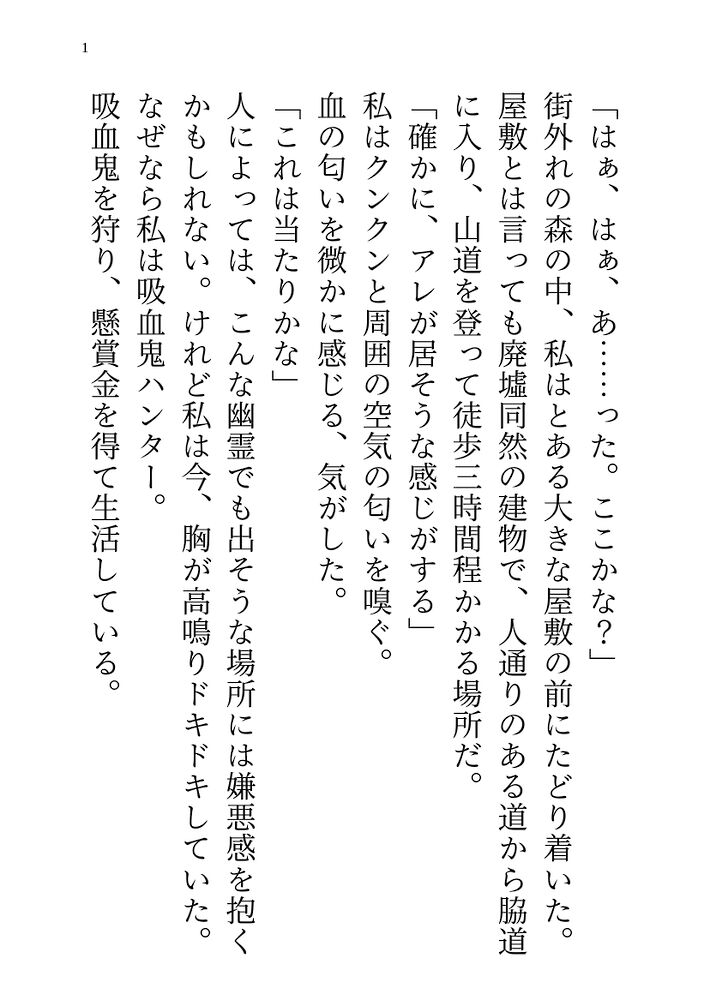 1
「はぁ、はぁ、あ……った。ここかな？」
街外れの森の中、私はとある大きな屋敷の前にたどり着いた。
屋敷とは言っても廃墟同然の建物で、人通りのある道から脇道
に入り、山道を登って徒歩三時間程かかる場所だ。
「確かに、アレが居そうな感じがする」
私はクンクンと周囲の空気の匂いを嗅ぐ。
血の匂いを微かに感じる、気がした。
「これは当たりかな」
人によっては、こんな幽霊でも出そうな場所には嫌悪感を抱く
かもしれない。けれど私は今、胸が高鳴りドキドキしていた。
なぜなら私は吸血鬼ハンター。
吸血鬼を狩り、懸賞金を得て生活している。